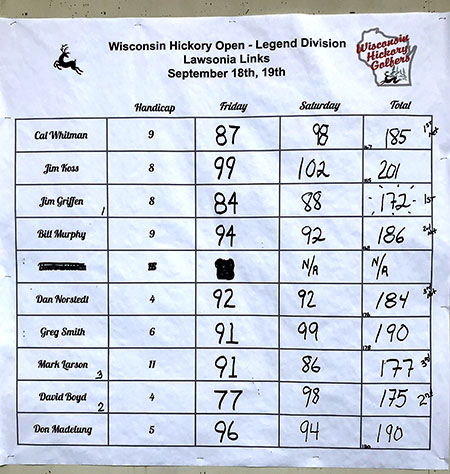 Wisconsin Hickory Open - Legend Division
Lawsonia Links
September 18th, 19th
Wisconsin
Hickory
Golfers
Handicap Friday Saturday Total
Cal Whitman 9 87 98 185 1st Net
Jim Koss 8 99 102 201
Jim Griffen 1 8 84 88 172 1st
Bill Murphy 9 94 92 186 2nd Net
N/R N/R
Dan Norstedt 4 92 92 184 3rd Net
Greg Smith 6 91 99 190
Mark Larson 3 11 91 86 177 3rd
David Boyd 2 4 77 98 175 2nd
Don Madelung 5 96 94 190